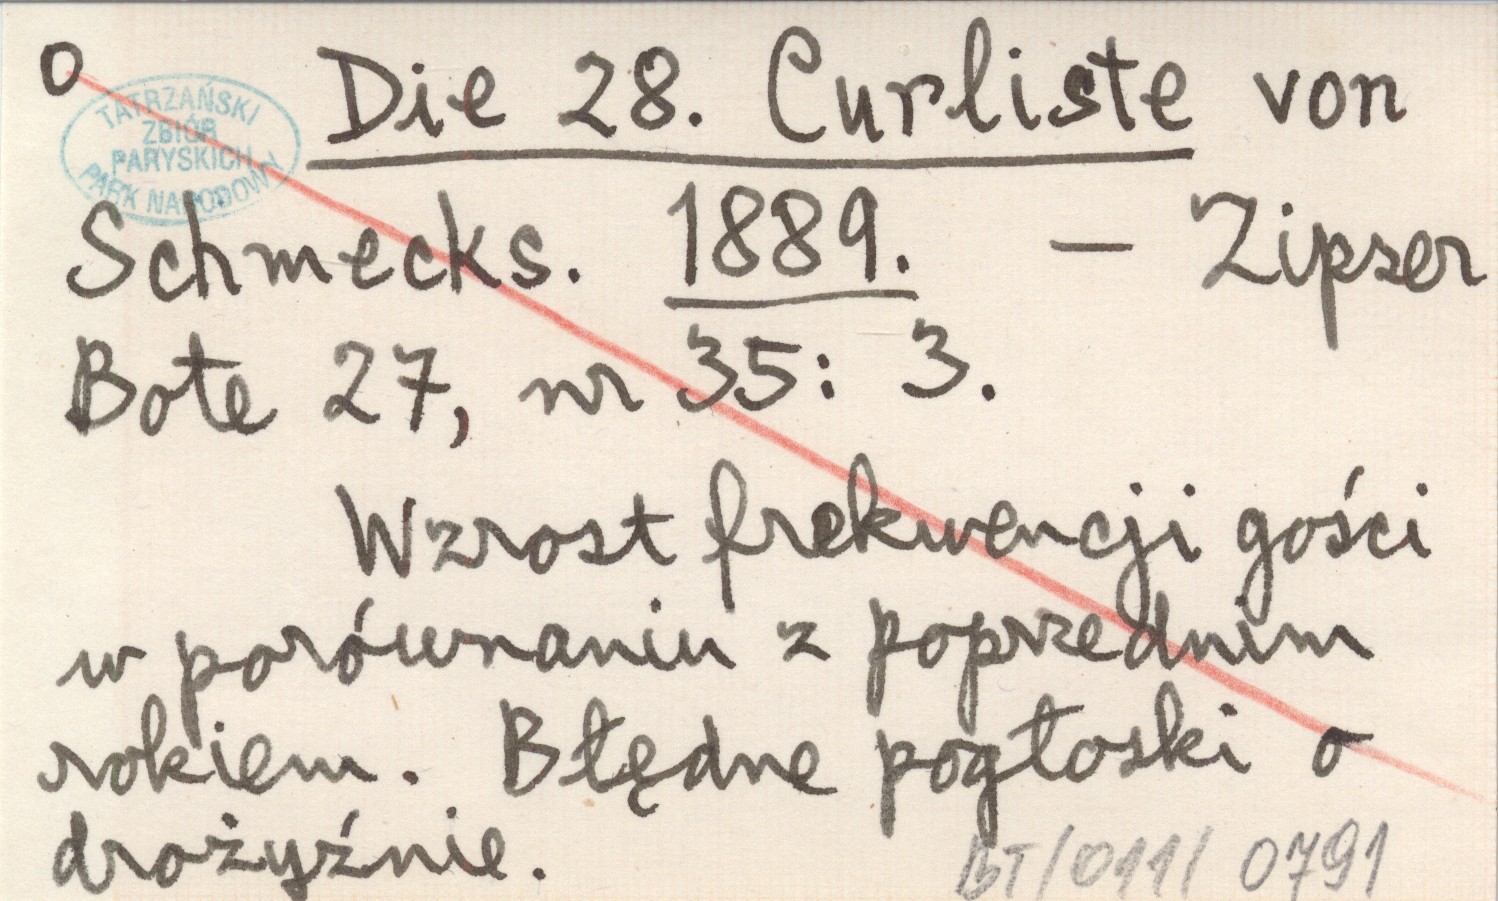 O
Die 28. Curliste von
TATRZAŃSKI
ZBIÓR
PARYSKICH
PARK NARODOWY
Schmecks. 1889. — Zipser
Bote 27, nr 35: 3.
Wzrost frekwencji gości
w porównaniu z poprzednim
rokiem. Błędne pogłoski o
drożyźnie.
BT/011/0791